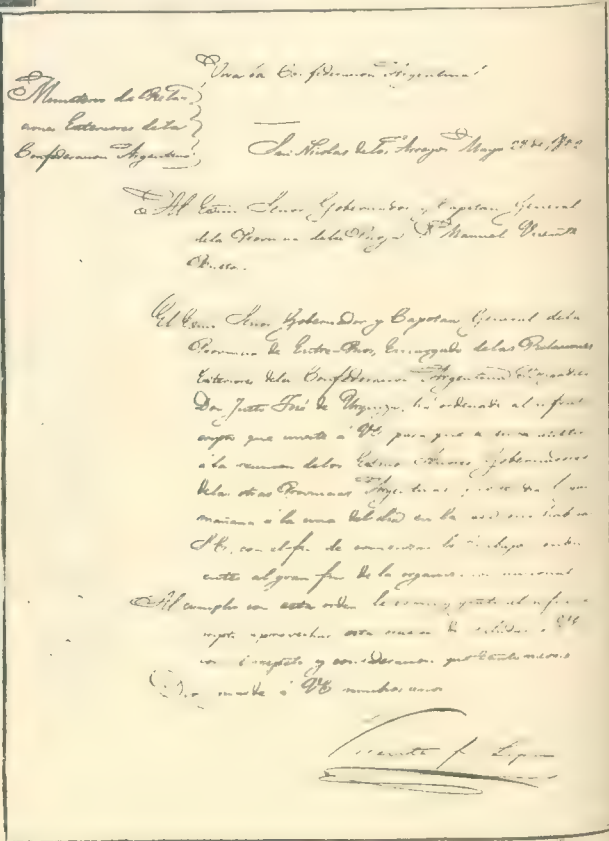 Viva la Confederacion Argentina!
Ministerio de Rela-
ciones Exteriores de la
Confederacion Argentina
San Nicolas de los Arroyos Mayo 28 de 1852
Al Exmo Señor Gobernador y Capitan General
de la Provincia de la Rioja D. Manuel Vicente
Bustos.
El Exmo Señor Gobernador y Capitan General de la
Provincia de Entre-Rios, Encargado de las Relaciones
Exteriores de la Confederacion Argentina
Don Justo José de Urquiza, ha ordenado al infras-
cripto que invite á VE para que se sirva asistir
á la reunion de los Exmos Señores Gobernadores
de las otras Provincias Argentinas
mañana á la una del dia en la
S.E., con el fin de comenzar los trabajos
al gran fin de la organizacion nacional
Al cumplir con esta orden le es muy grato al infras-
cripto aprovechar esta nueva de saludar á VE
con respeto y consideracion que tanto merece
Dios guarde á VE muchos años
Vicente F. Lopez